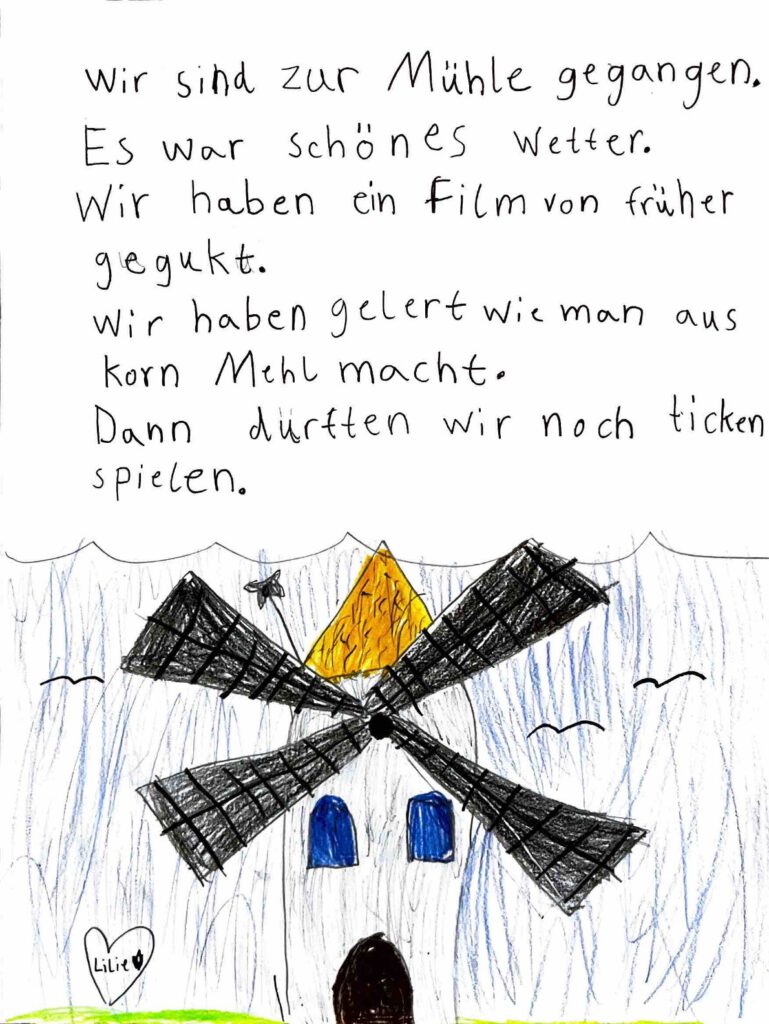 Wir sind zur Mühle gegangen.
Es war schönes Wetter.
Wir haben ein Film von früher
gegukt.
Wir haben gelert wie man aus
korn Mehl macht.
Dann dürften wir noch ticken
spielen.
Lilie